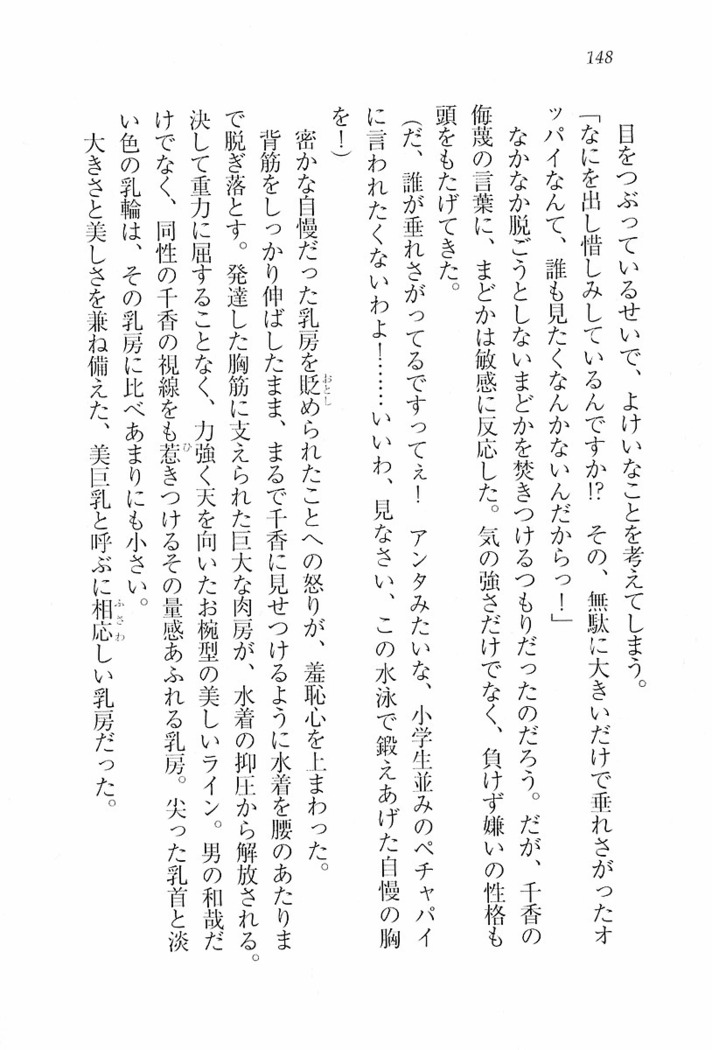 148
目をつぶっているせいで、よけいなことを考えてしまう。
「なにを出し惜しみしているんですか!?　その、無駄に大きいだけで垂れさがったオ
ッパイなんて、誰も見たくなんかないんだからっ！」
なかなか脱ごうとしないまどかを焚きつけるつもりだったのだろう。だが、千香の
侮蔑の言葉に、まどかは敏感に反応した。気の強さだけでなく、負けず嫌いの性格も
頭をもたげてきた。
（だ、誰が垂れさがってるですってぇ！　アンタみたいな、小学生並みのペチャパイ
に言われたくないわよ！……いいわ、見なさい、この水泳で鍛えあげた自慢の胸
を！）
密かな自慢だった乳房を貶められたことへの怒りが、羞恥心を上まわった。
背筋をしっかり伸ばしたまま、まるで千香に見せつけるように水着を腰のあたりま
で脱ぎ落とす。発達した胸筋に支えられた巨大な肉房が、水着の抑圧から解放される。
決して重力に屈することなく、力強く天を向いたお椀型の美しいライン。男の和哉だ
けでなく、同性の千香の視線をも惹きつけるその量感あふれる乳房。尖った乳首と淡
い色の乳輪は、その乳房に比べあまりにも小さい。
大きさと美しさを兼ね備えた、美巨乳と呼ぶに相応しい乳房だった。